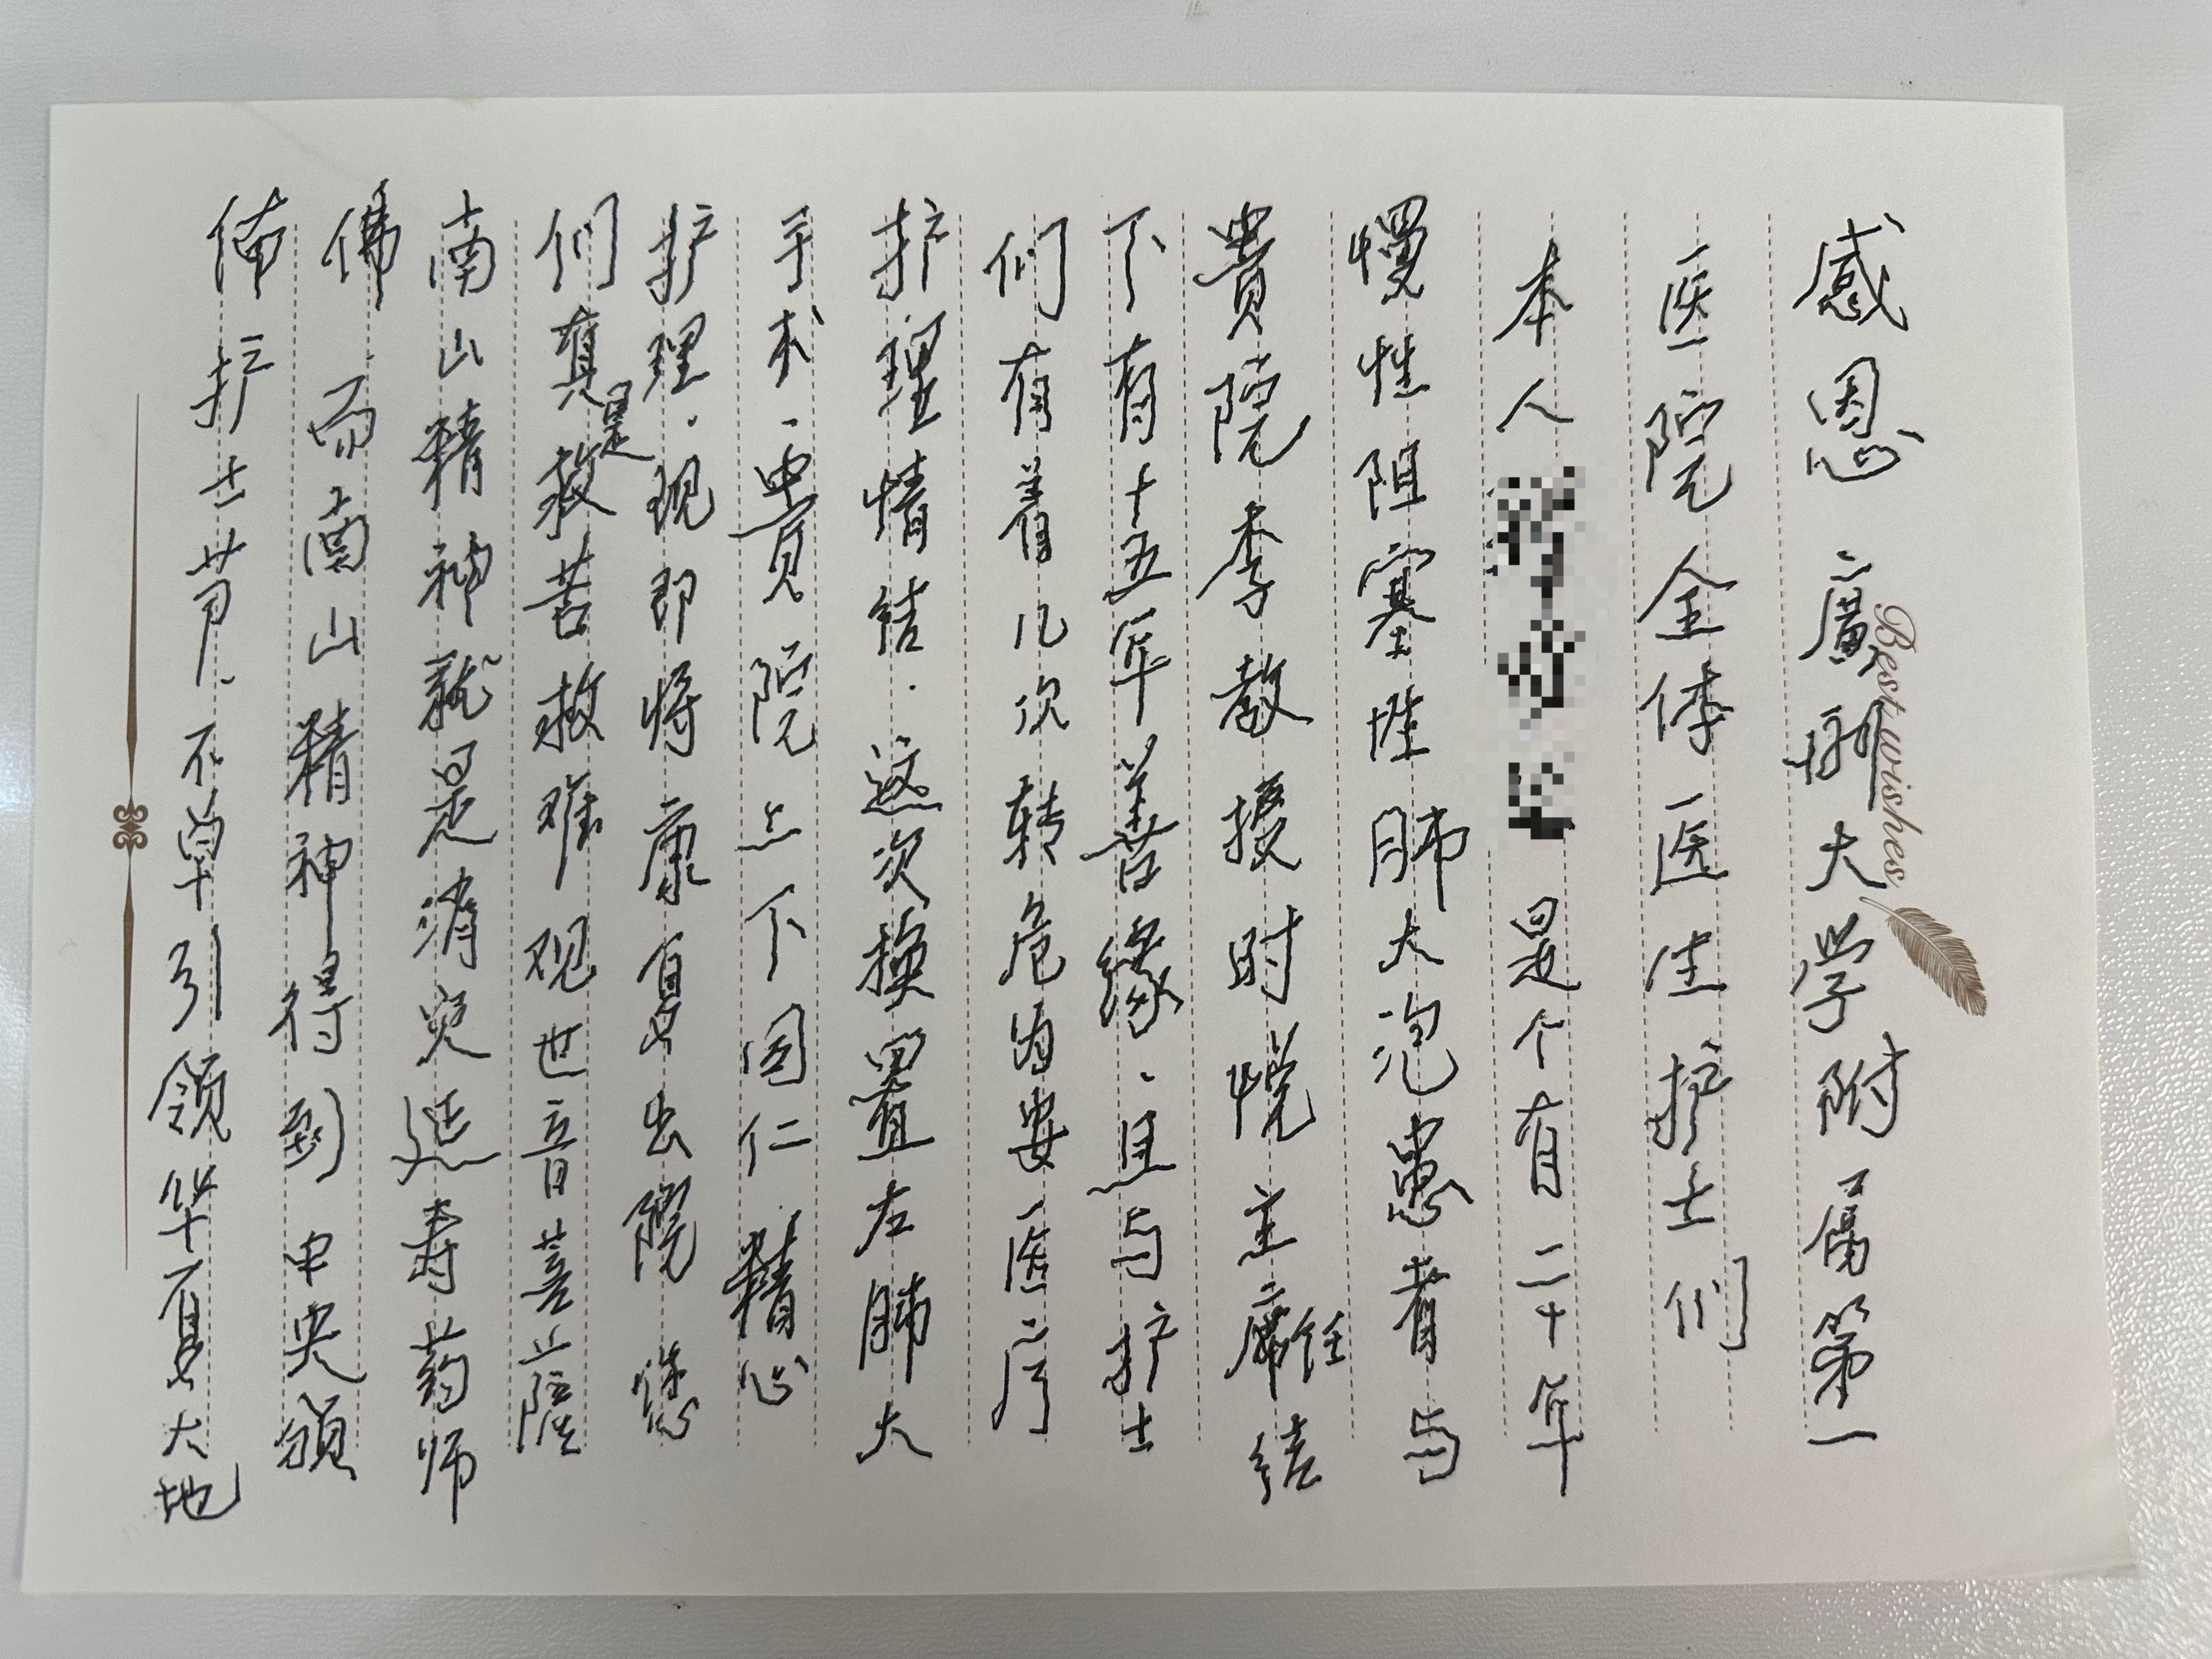 感恩 廣州大学附属第一
医院全体医生护士们
本人 是个有二十年
慢性阻塞性肺大泡患者与
貴院李教援时悦主席任结
下有十五年善缘.且与护士
们有着几次转危为安医疗
护理情结.这次换置左肺大
手术.贵院上下同仁精心
护理.现即将康复出院 您
们真是救苦救难观世音菩薩
南山精神就是消灾延寿药师
佛.而南山精神得到中央颁
布护士节.不单引领华夏大地
Best wishes